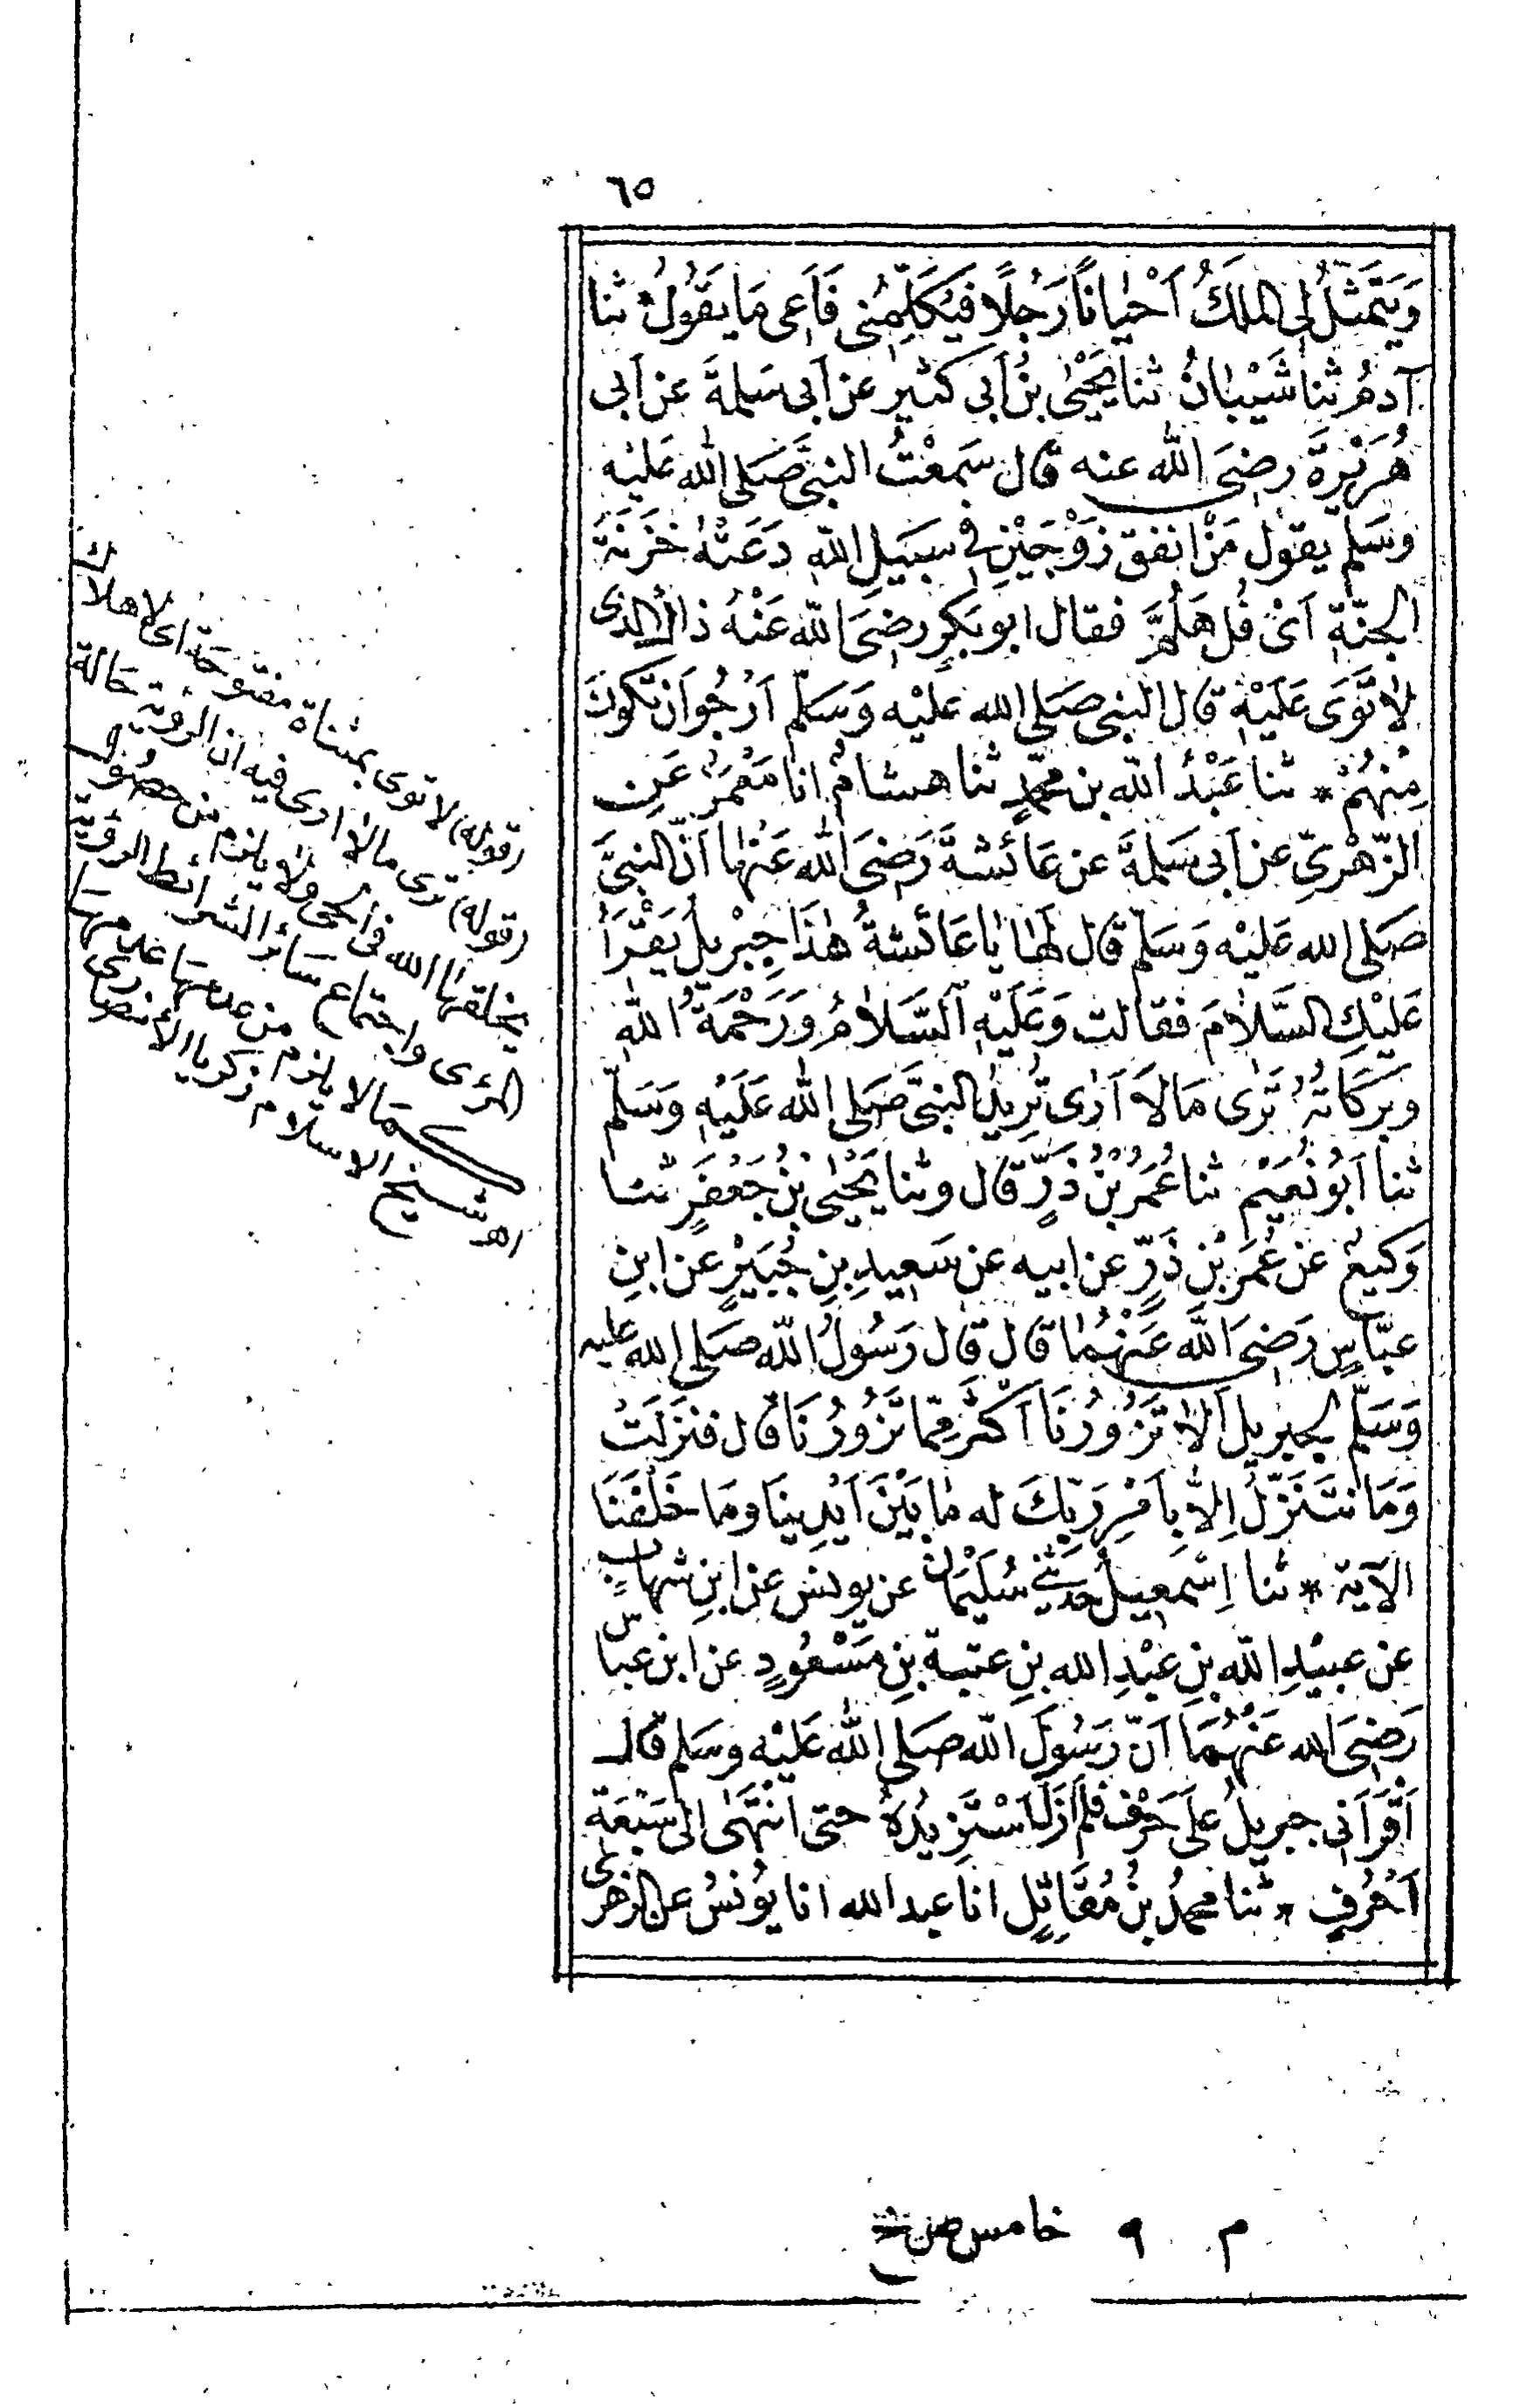 ٦٥
وَيَتَمَثَّلُ لِى الملَكُ اَحْيَاناً رَجُلًا فَيُكَلِّمُنِى فَاَعِى مَا يَقُولُ * ثنا
آدمُ ثنا شَيْبَانُ ثنا يَحْيَى بنُ اَبى كثيرٍ عن اَبى سَلمةَ عن اَبى
هُرَيْرَةَ رضىَ الله عنه قال سَمِعْتُ النبىَّ صَلى الله عَليْه
وَسَلم يقول مَنْ انفق زَوْجَيْنِ فى سبيلِ اللهِ دَعَتْهُ خَزَنَةُ
الجنّةِ اَىْ فُلُ هَلُمَّ فقال ابو بَكرٍ رضىَ الله عَنْهُ ذاكَ الذى
لاَ تَوَى عَلَيْهِ قال النبى صَلى الله عَليْه وَسَلّم اَرْجُو اَنْ تكُونَ
مِنْهُمْ * ثنا عَبْدُ الله بن محمّدٍ ثنا هشامُ انا مَعْمَرٌ عَنِ
الزّهْرىِّ عن اَبى سَلمةَ عن عَائشةَ رَضىَ الله عَنْها اَنّ النبىَّ
صَلى الله عَليْه وَسَلّم قال لهَا يَا عَائشةُ هٰذَا جِبْريلُ يَقْرَأُ
عَليْكِ السَّلاَمَ فقالت وَعَلَيْهِ السَّلاَمُ وَرَحْمَةُ الله
وبَرَكَاتُهُ تَرَى مَا لاَ اَرَى تُرِيدُ النبىَّ صَلى الله عَلَيْهِ وَسَلّم
ثنا اَبُو نُعَيْمٍ ثنا عُمَرُ بْنُ ذَرٍّ قال وثنا يَحْيَى بْنُ جَعْفَرٍ ثنا
وَكيعٌ عَنْ عُمَرَ بْنِ ذَرٍّ عن ابيه عن سَعيدِ بنِ جُبَيْرٍ عن ابنِ
عبّاسٍ رَضىَ الله عَنْهُمَا قال قال رَسُولُ الله صَلى الله عليه
وَسَلّم لجبريل اَلاَ تَزُورُنَا اَكثَرَ مِمّا تَزُورُنَا قال فنَزَلَتْ
وَمَا نتَنَزّلُ اِلاّ بِاَمْرِ رَبِّكَ له مَا بَيْنَ اَيْدِينَا ومَا خَلْفَنَا
الآيَة * ثنا اِسْمَعيلُ حَدثنى سُلَيْمَان عن يونس عن ابنِ شهابٍ
عن عبيْدِ الله بنِ عَبْدِ الله بنِ عتبةَ بنِ مَسْعُودٍ عن ابن عباس
رَضىَ الله عَنْهُمَا اَنّ رَسُولَ الله صَلى الله عَليْه وسَلم قال
اَقْرَاَنى جبريلُ عَلَى حَرْفٍ فلم اَزَلْ اَسْتَزِيدُهُ حتى انْتَهَى الى سَبْعَةِ
اَحْرُفٍ * ثنا محمدُ بنُ مُقَاتِلٍ انا عبد الله انا يُونسُ عن الزهرى
(قوله) لا توى بمثناة مفتوحة اى لا هلاك
(قوله) ترى مالا ارى فيه ان الرؤية حالة
يخلقها الله فى الحى ولا يلزم من حصول
المرئى واجتماع سائر الشرائط الرؤية
كما لا يلزم من عدمها عدمها
اهـ شيخ الاسلام زكريا الأنصارى
م ٩ خامس